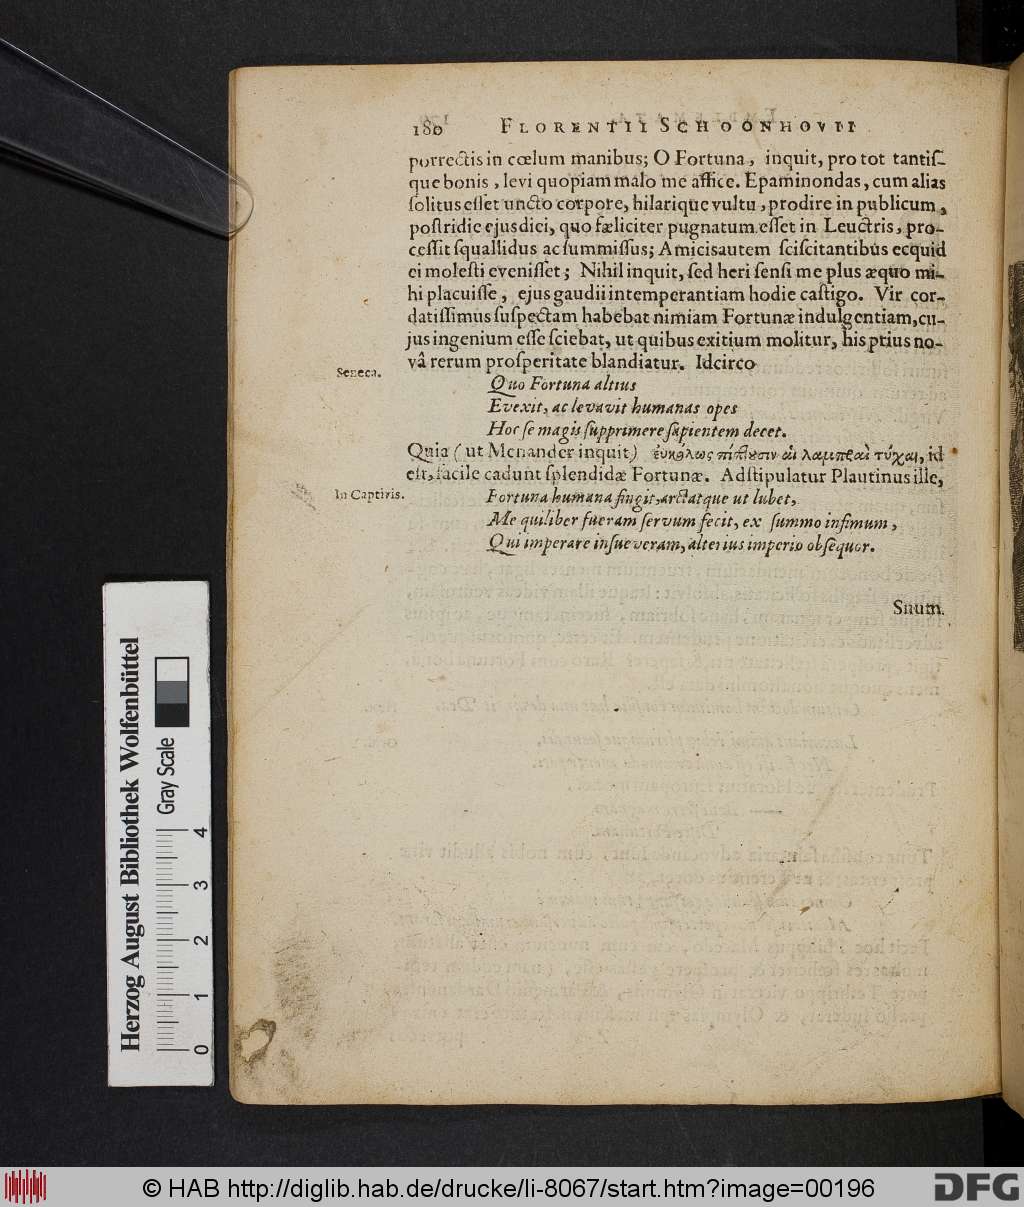 180 FLORENTII SCHOONHOVII
porrectis in cœlum manibus; O Fortuna, inquit, pro tot tantis-
que bonis, levi quopiam malo me affice. Epaminondas, cum alias
solitus esset uncto corpore, hilarique vultu, prodire in publicum,
postridie ejus diei, quo fæliciter pugnatum esset in Leuctris, pro-
cessit squallidus ac summissus; Amicis autem sciscitantibus ecquid
ei molesti evenisset; Nihil inquit, sed heri sensi me plus æquo mi-
hi placuisse, ejus gaudii intemperantiam hodie castigo. Vir cor-
datissimus suspectam habebat nimiam Fortunæ indulgentiam, cu-
jus ingenium esse sciebat, ut quibus exitium molitur, his prius no-
vâ rerum prosperitate blandiatur. Idcirco
Seneca.
Quo Fortuna altius
Evexit, ac levavit humanas opes
Hoc se magis supprimere sapientem decet.
Quia (ut Menander inquit) εὐκόλως πίπτουσιν αἱ λαμπραὶ τύχαι, id
est, facile cadunt splendidæ Fortunæ. Adstipulatur Plautinus ille,
In Captivis.
Fortuna humana fingit, arctatque ut lubet,
Me qui liber fueram servum fecit, ex summo infimum,
Qui imperare insueveram, alterius imperio obsequor.
Suum.
Herzog August Bibliothek Wolfenbüttel
Gray Scale
0 1 2 3 4
© HAB http://diglib.hab.de/drucke/li-8067/start.htm?image=00196
DFG